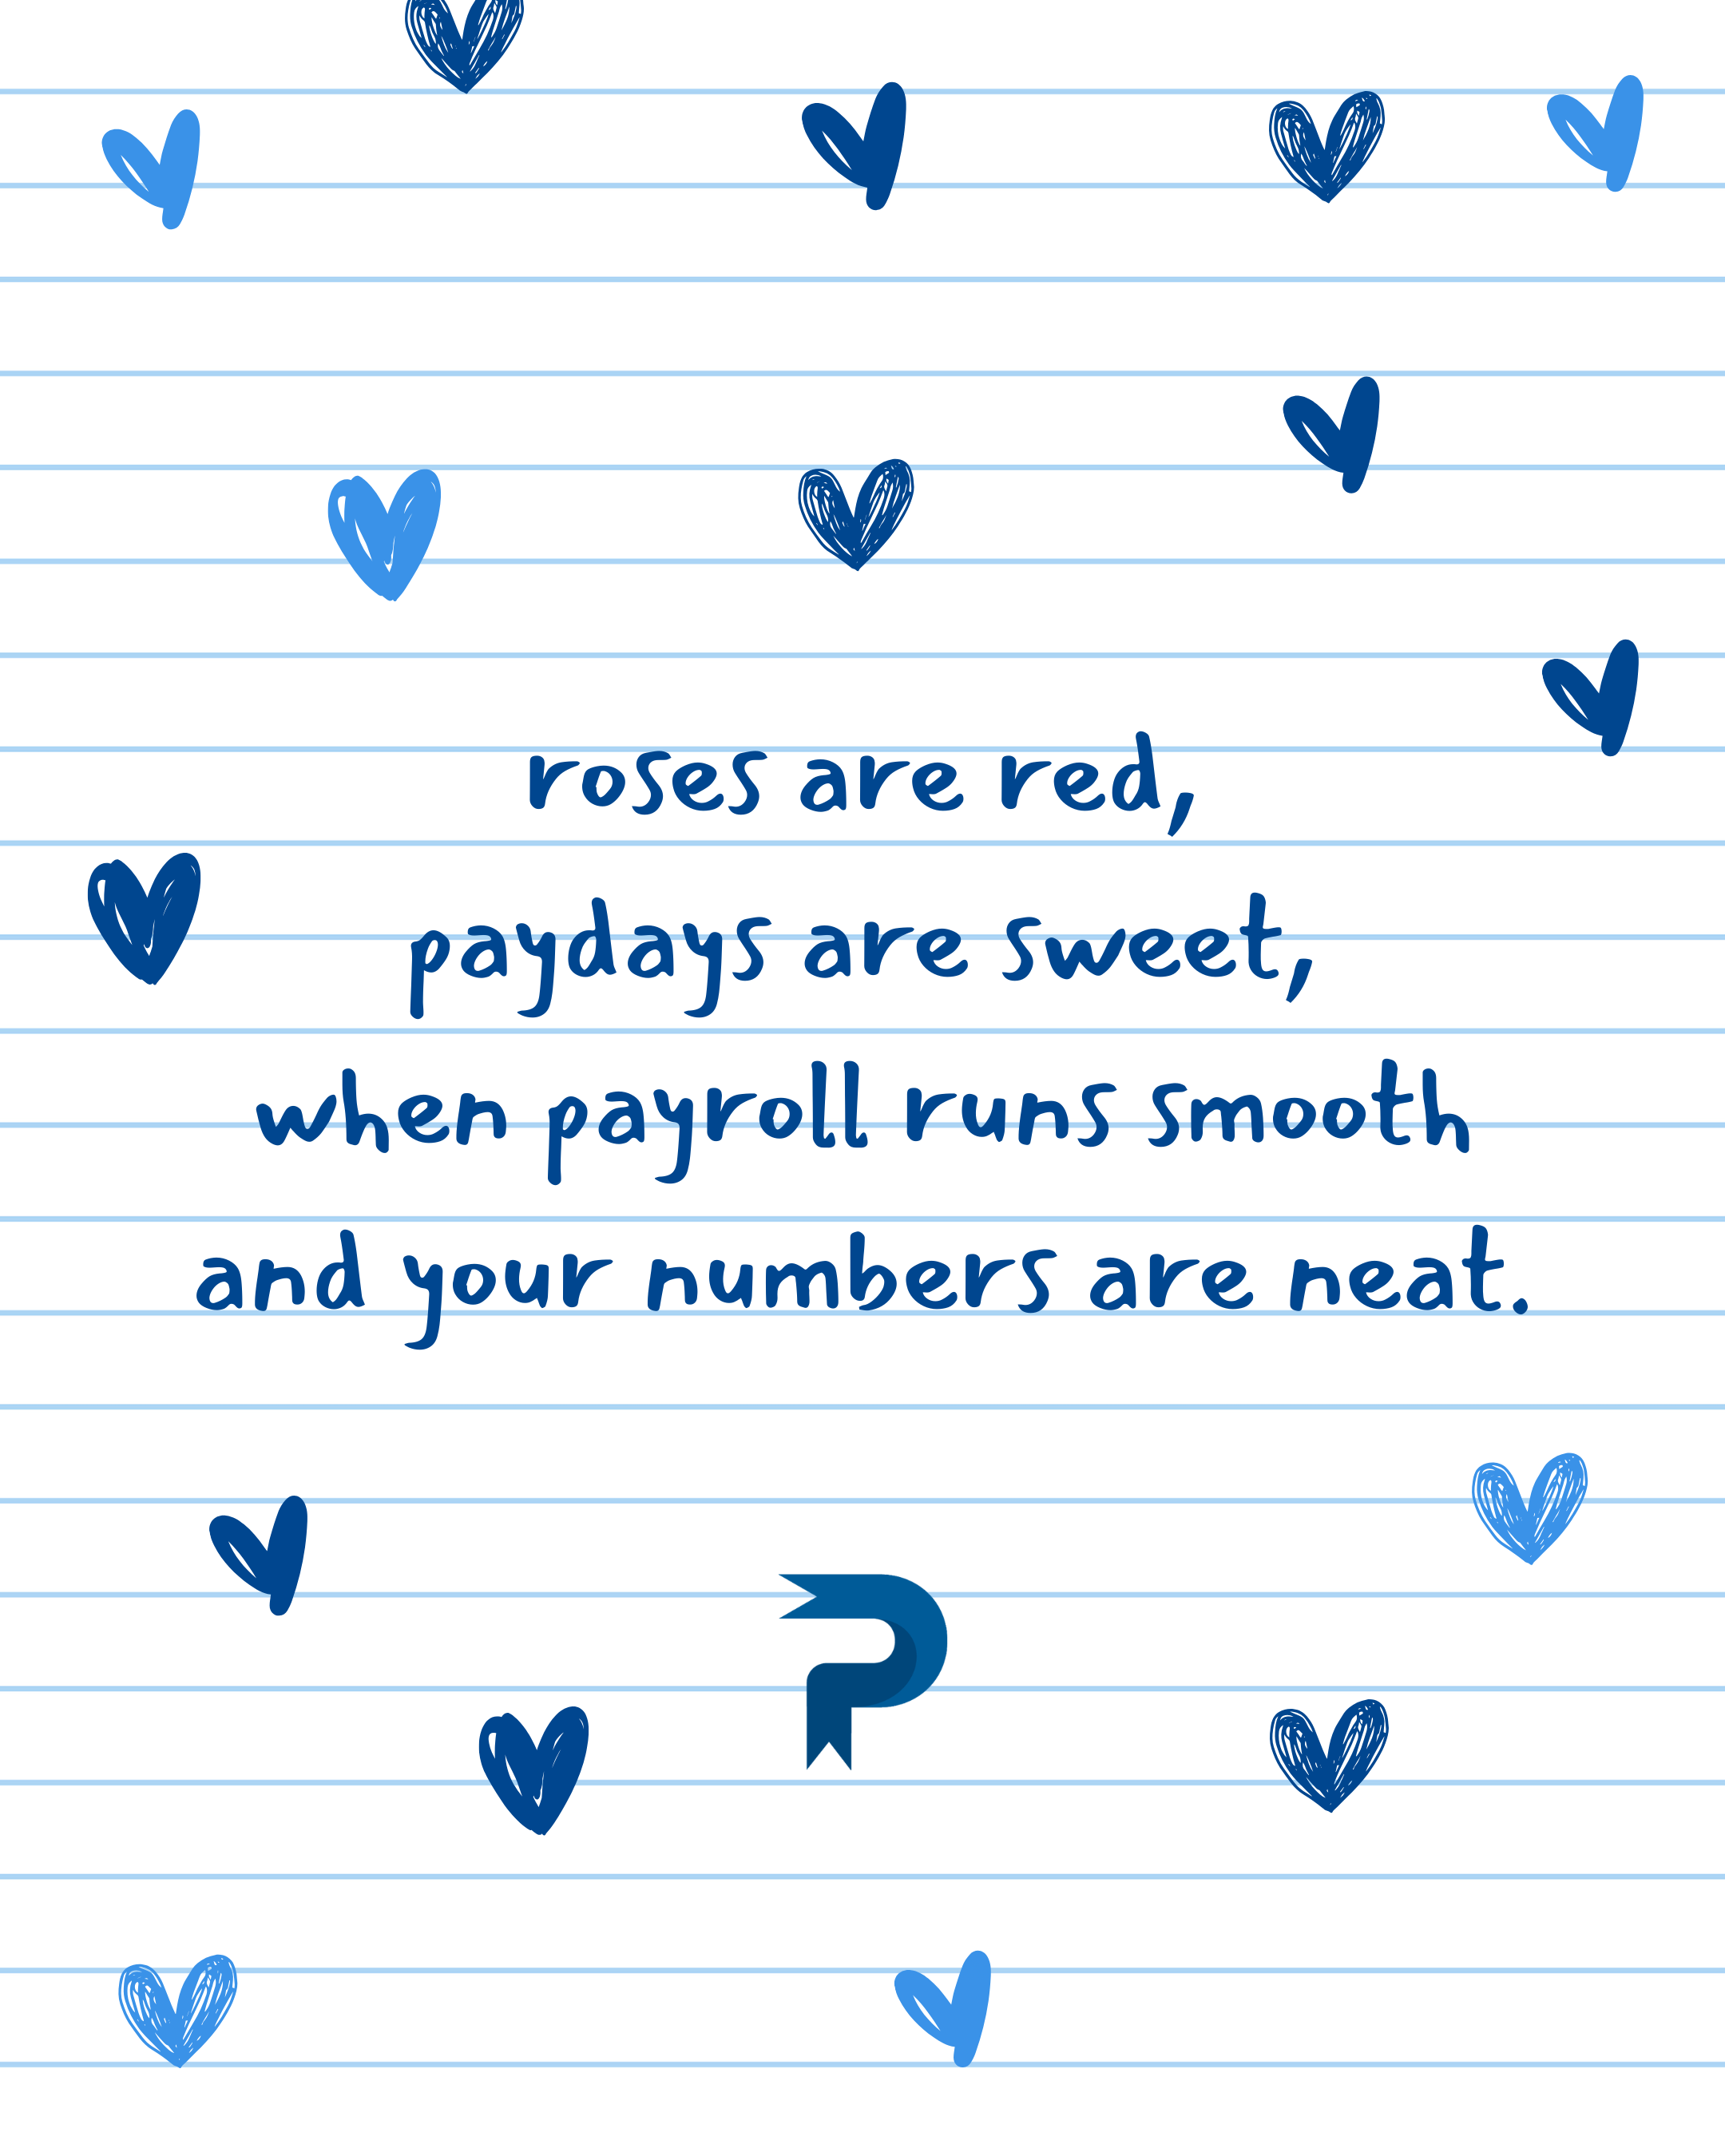 roses are red,
paydays are sweet,
when payroll runs smooth
and your numbers are neat.